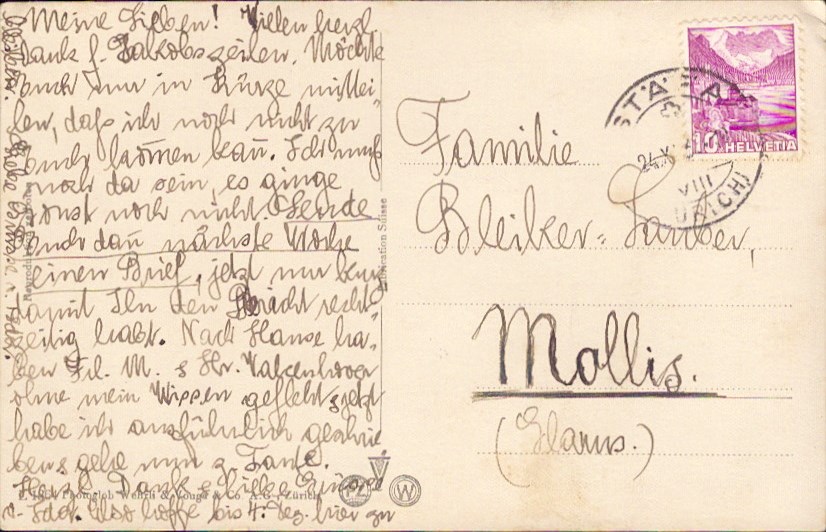 Meine Lieben! Vielen herzl.
Dank f. Jakobszeilen. Möchte
Euch nur in Kürze mittei=
len, daß ich noch nicht zu
Euch kommen kann. Ich muß
noch da sein, es ginge
sonst noch nicht. Sende
Euch dann nächste Woche
einen Brief, jetzt nur kurz
damit Ihr den Bericht recht=
zeitig habt. Nach Hause ha=
ben Frl. M. & Hr.
ohne mein Wissen & jetzt
habe ich ausführlich geschrie
ben & gehe nun z. Tante.
Herzl. Dank & liebe Grüsse
Also hoffe bis 4. Dez. hier zu
Edition Suisse
© 1934 Photoglob Wehrli & Vouga & Co. A.G., Zürich
PZ
W
STÄFA
24.X
VIII
(ZÜRICH)
10 HELVETIA
Familie
Bleiker-Tauber,
Mollis.
(Glarus.)